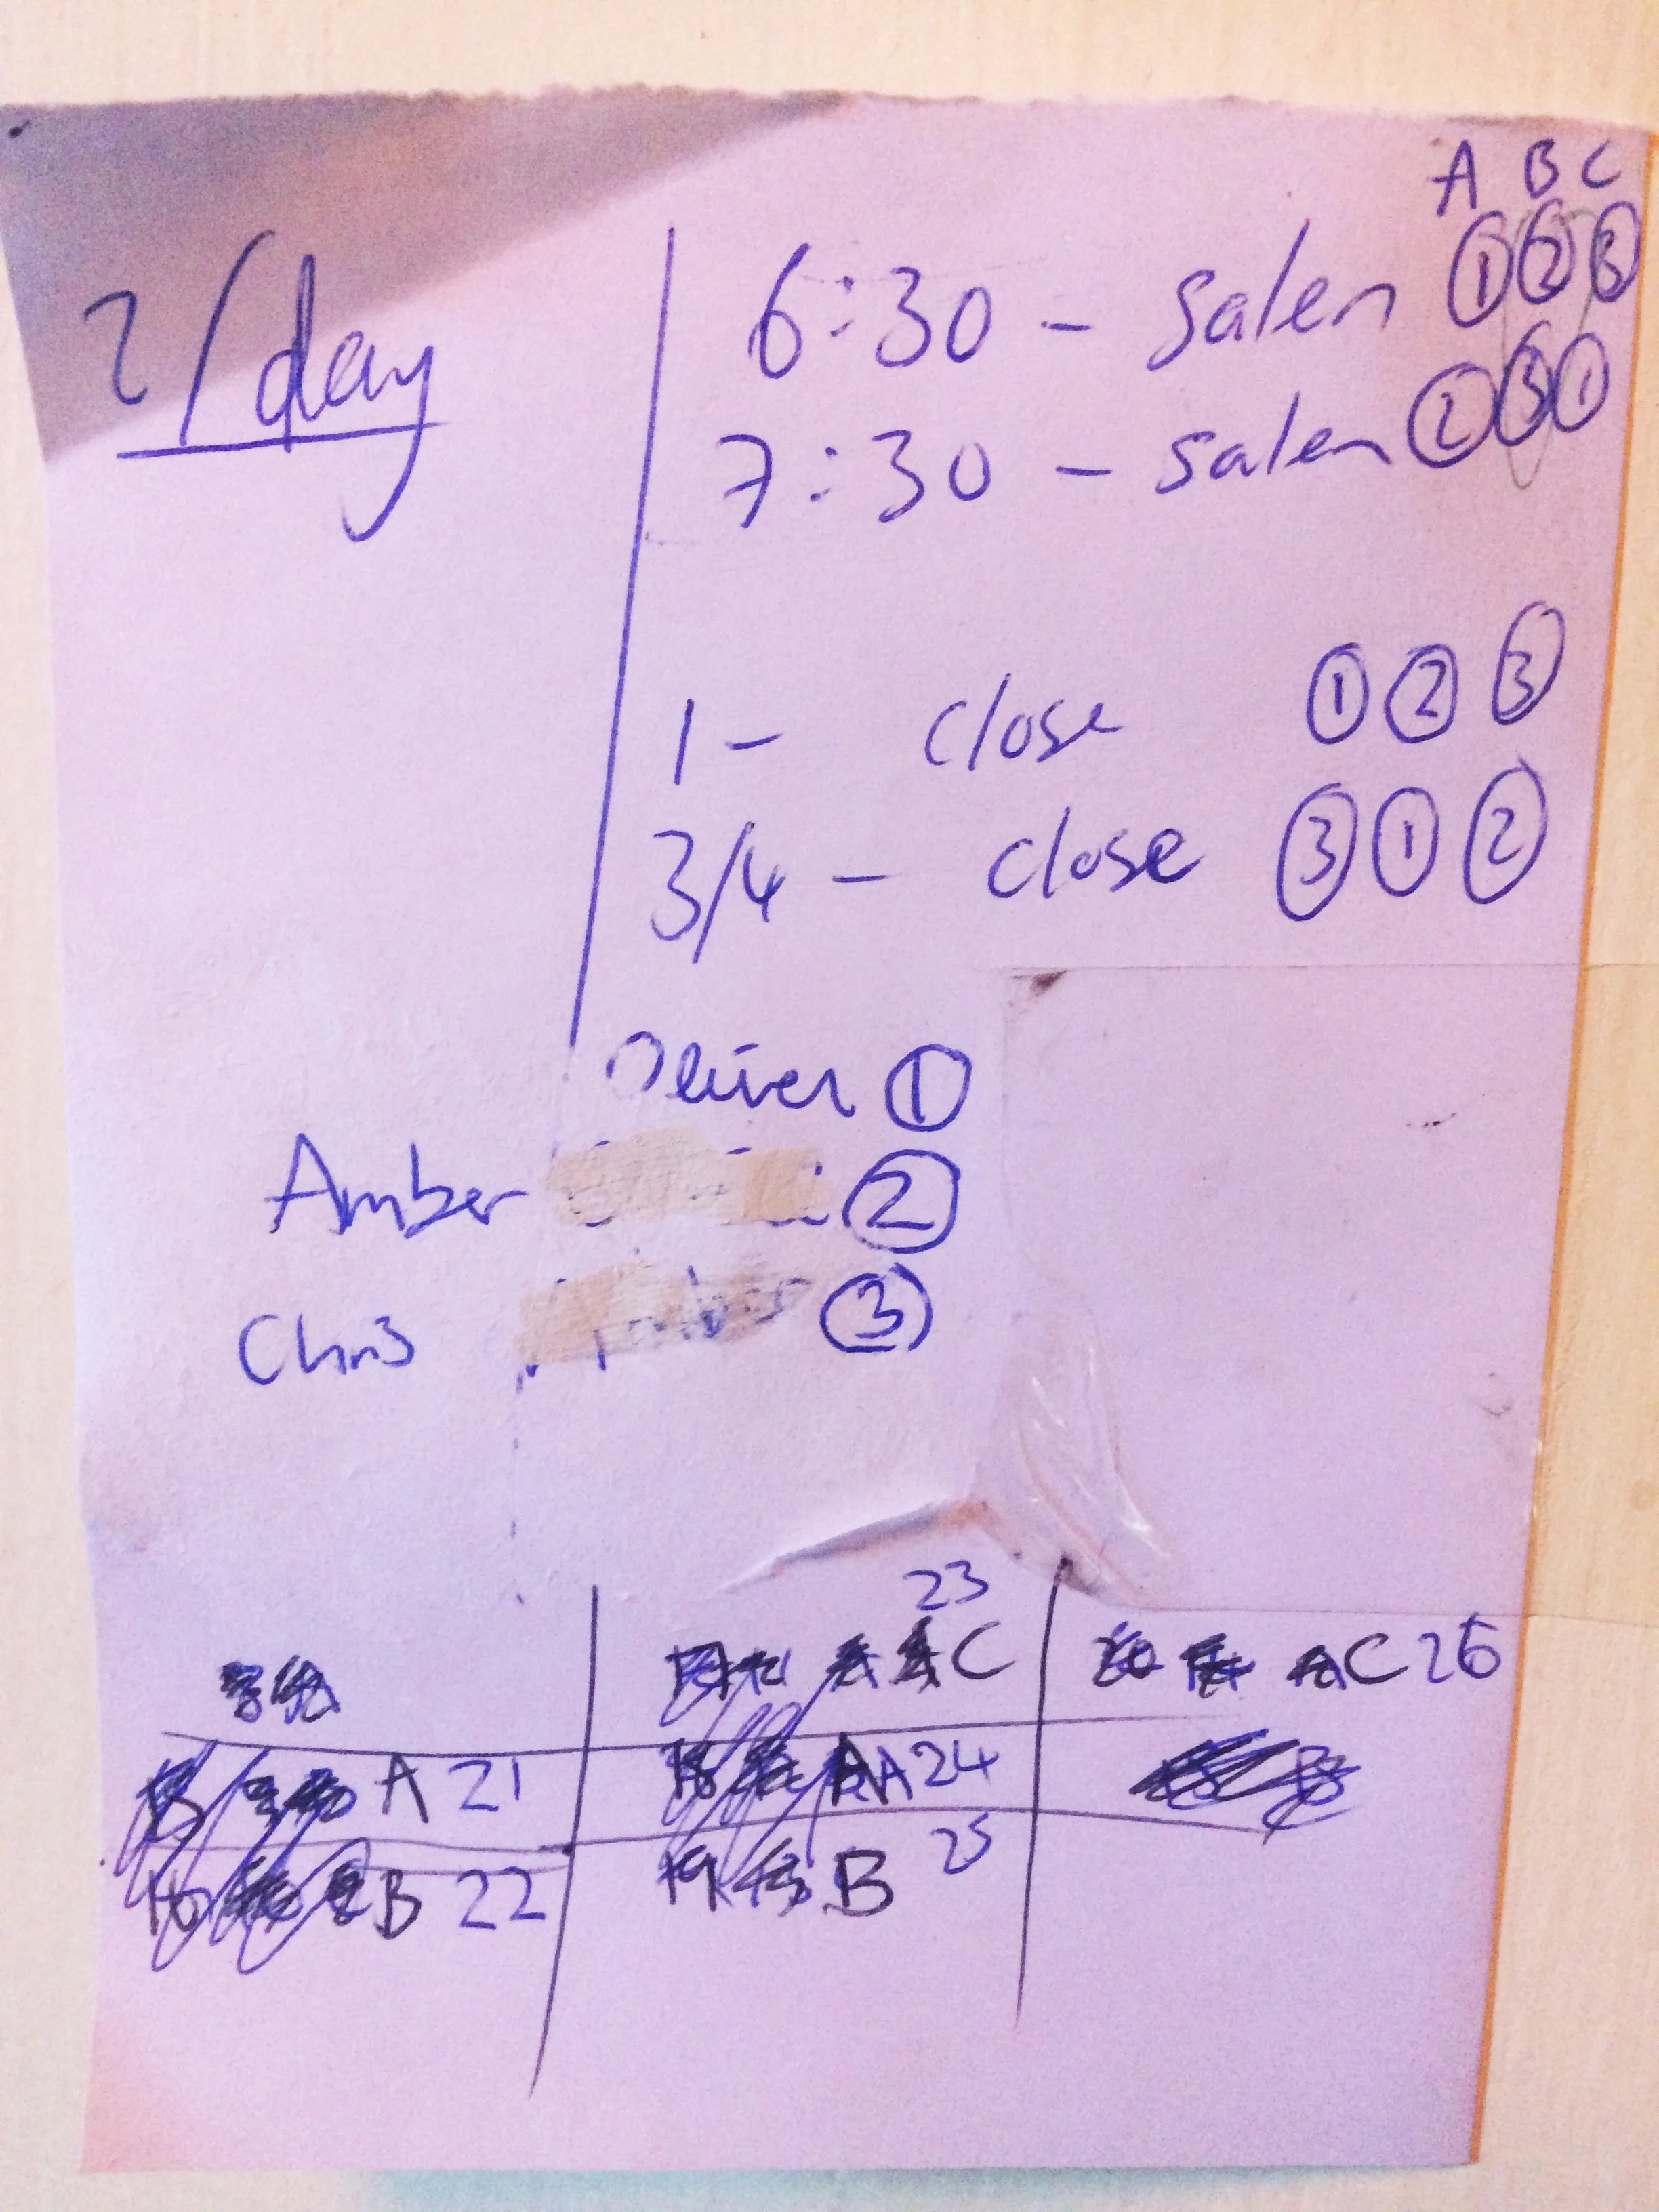 A B C
2/day
6:30 - salen ① ② ③
7:30 - salen ② ③ ①
1 - close ① ② ③
3/4 - close ③ ① ②
Oliver ①
Amber ②
Chris ③
23
C
C 26
A 21
A 24
B 22
B 25